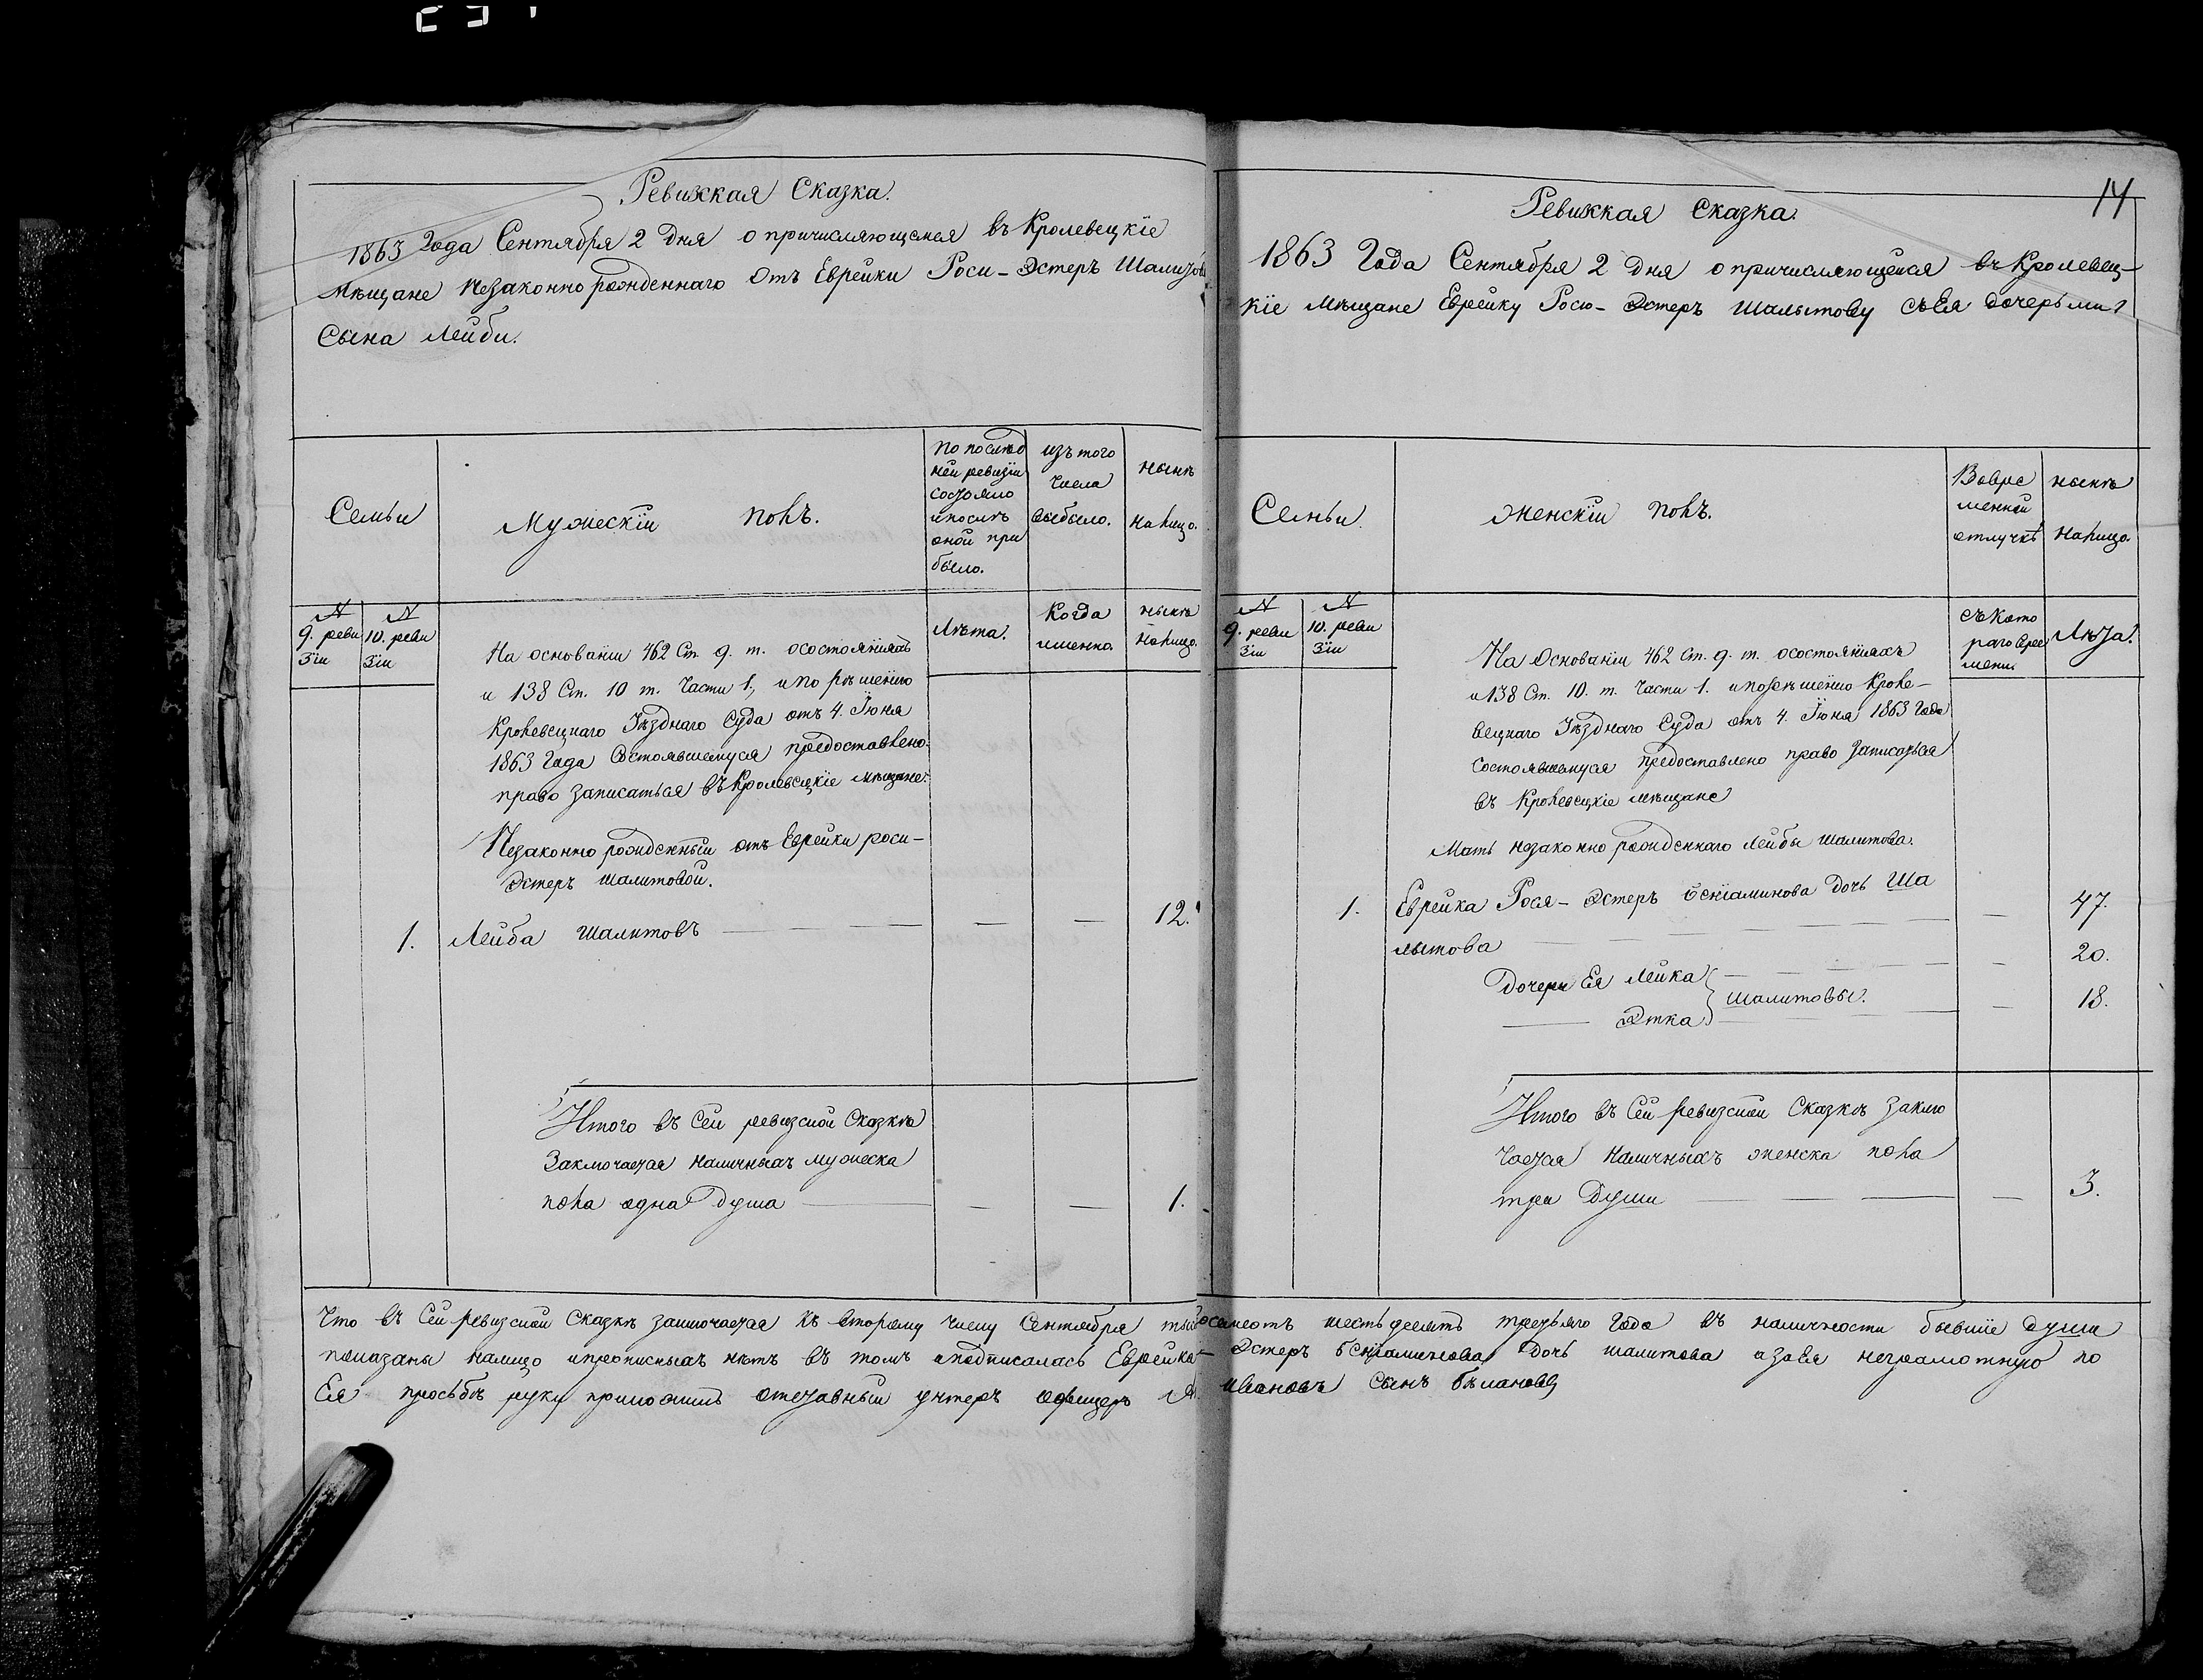 Ревижская Сказка.
1863 Года Сентября 2 дня о причисляющемся въ Кролевецкіе
мѣщане незаконно рожденнаго отъ Еврейки Роси-Эстеръ
Сына Лейби.
Семьи
Мужескій полъ.
По послѣд
ней ревизіи
состояло
и послѣ
оной при
было.
изъ того
числа
выбыло.
нынѣ
налицо.
№
9. реви
зіи
№
10. реви
зіи
Лѣта.
Когда
именно.
нынѣ
налицо.
На основаніи 462 Ст. 9. т. о состояніяхъ
и 138 Ст. 10 т. Части 1., и по рѣшенію
Кролевецкаго Уѣзднаго Суда отъ 4. Іюня
1863 Года Состоявшемуся предоставлено
право записаться въ Кролевецкіе мѣщане.
Незаконно рожденный отъ Еврейки роси-
Эстеръ шалитовой.
1. Лейба шалитовъ — — 12.
Итого въ Сей ревизской Сказкѣ
Заключается наличныхъ мужеска
пола одна душа — — 1.
14
Ревижская Сказка.
1863 Года Сентября 2 дня о причисляющейся въ Кролевец-
кіе мѣщане Еврейку Росю-Эстеръ Шалытову съ Ея дочерьми
Семьи.
женскій полъ.
Во вре
менной
отлучкѣ
нынѣ
налицо.
№
9. реви
зіи
№
10. реви
зіи
Съ кото
раго вре
мени.
Лѣта.
На Основаніи 462 ст. 9. т. о состояніяхъ
и 138 Ст. 10. т. Части 1. и по рѣшенію Кроле-
вецкаго Уѣзднаго Суда отъ 4. Іюня 1863 Года
состоявшемуся предоставлено право записаться
въ Кролевецкіе мѣщане
Мать незаконно рожденнаго Лейбы шалитова.
1. Еврейка Рося-Эстеръ Беніаминова дочь Ша — 47.
лытова — 20.
Дочери Ея Лейка
шалитовы. — 18.
— Этка
Итого въ Сей ревизской Сказкѣ заклю
чается наличныхъ женска пола
три Души — 3.
Что въ Сей ревизской Сказкѣ заключается къ второму числу Сентября шестьдесятъ третьяго Года въ наличности бывшіе души
показаны налицо и прописныхъ нѣтъ въ томъ и подписалась Еврейка Эстеръ Беніаминова дочь шалитова а за Ея неграмотную по
Ея просьбѣ руку приложилъ отставный унтеръ офицеръ Ивановъ Сынъ Бѣлановъ